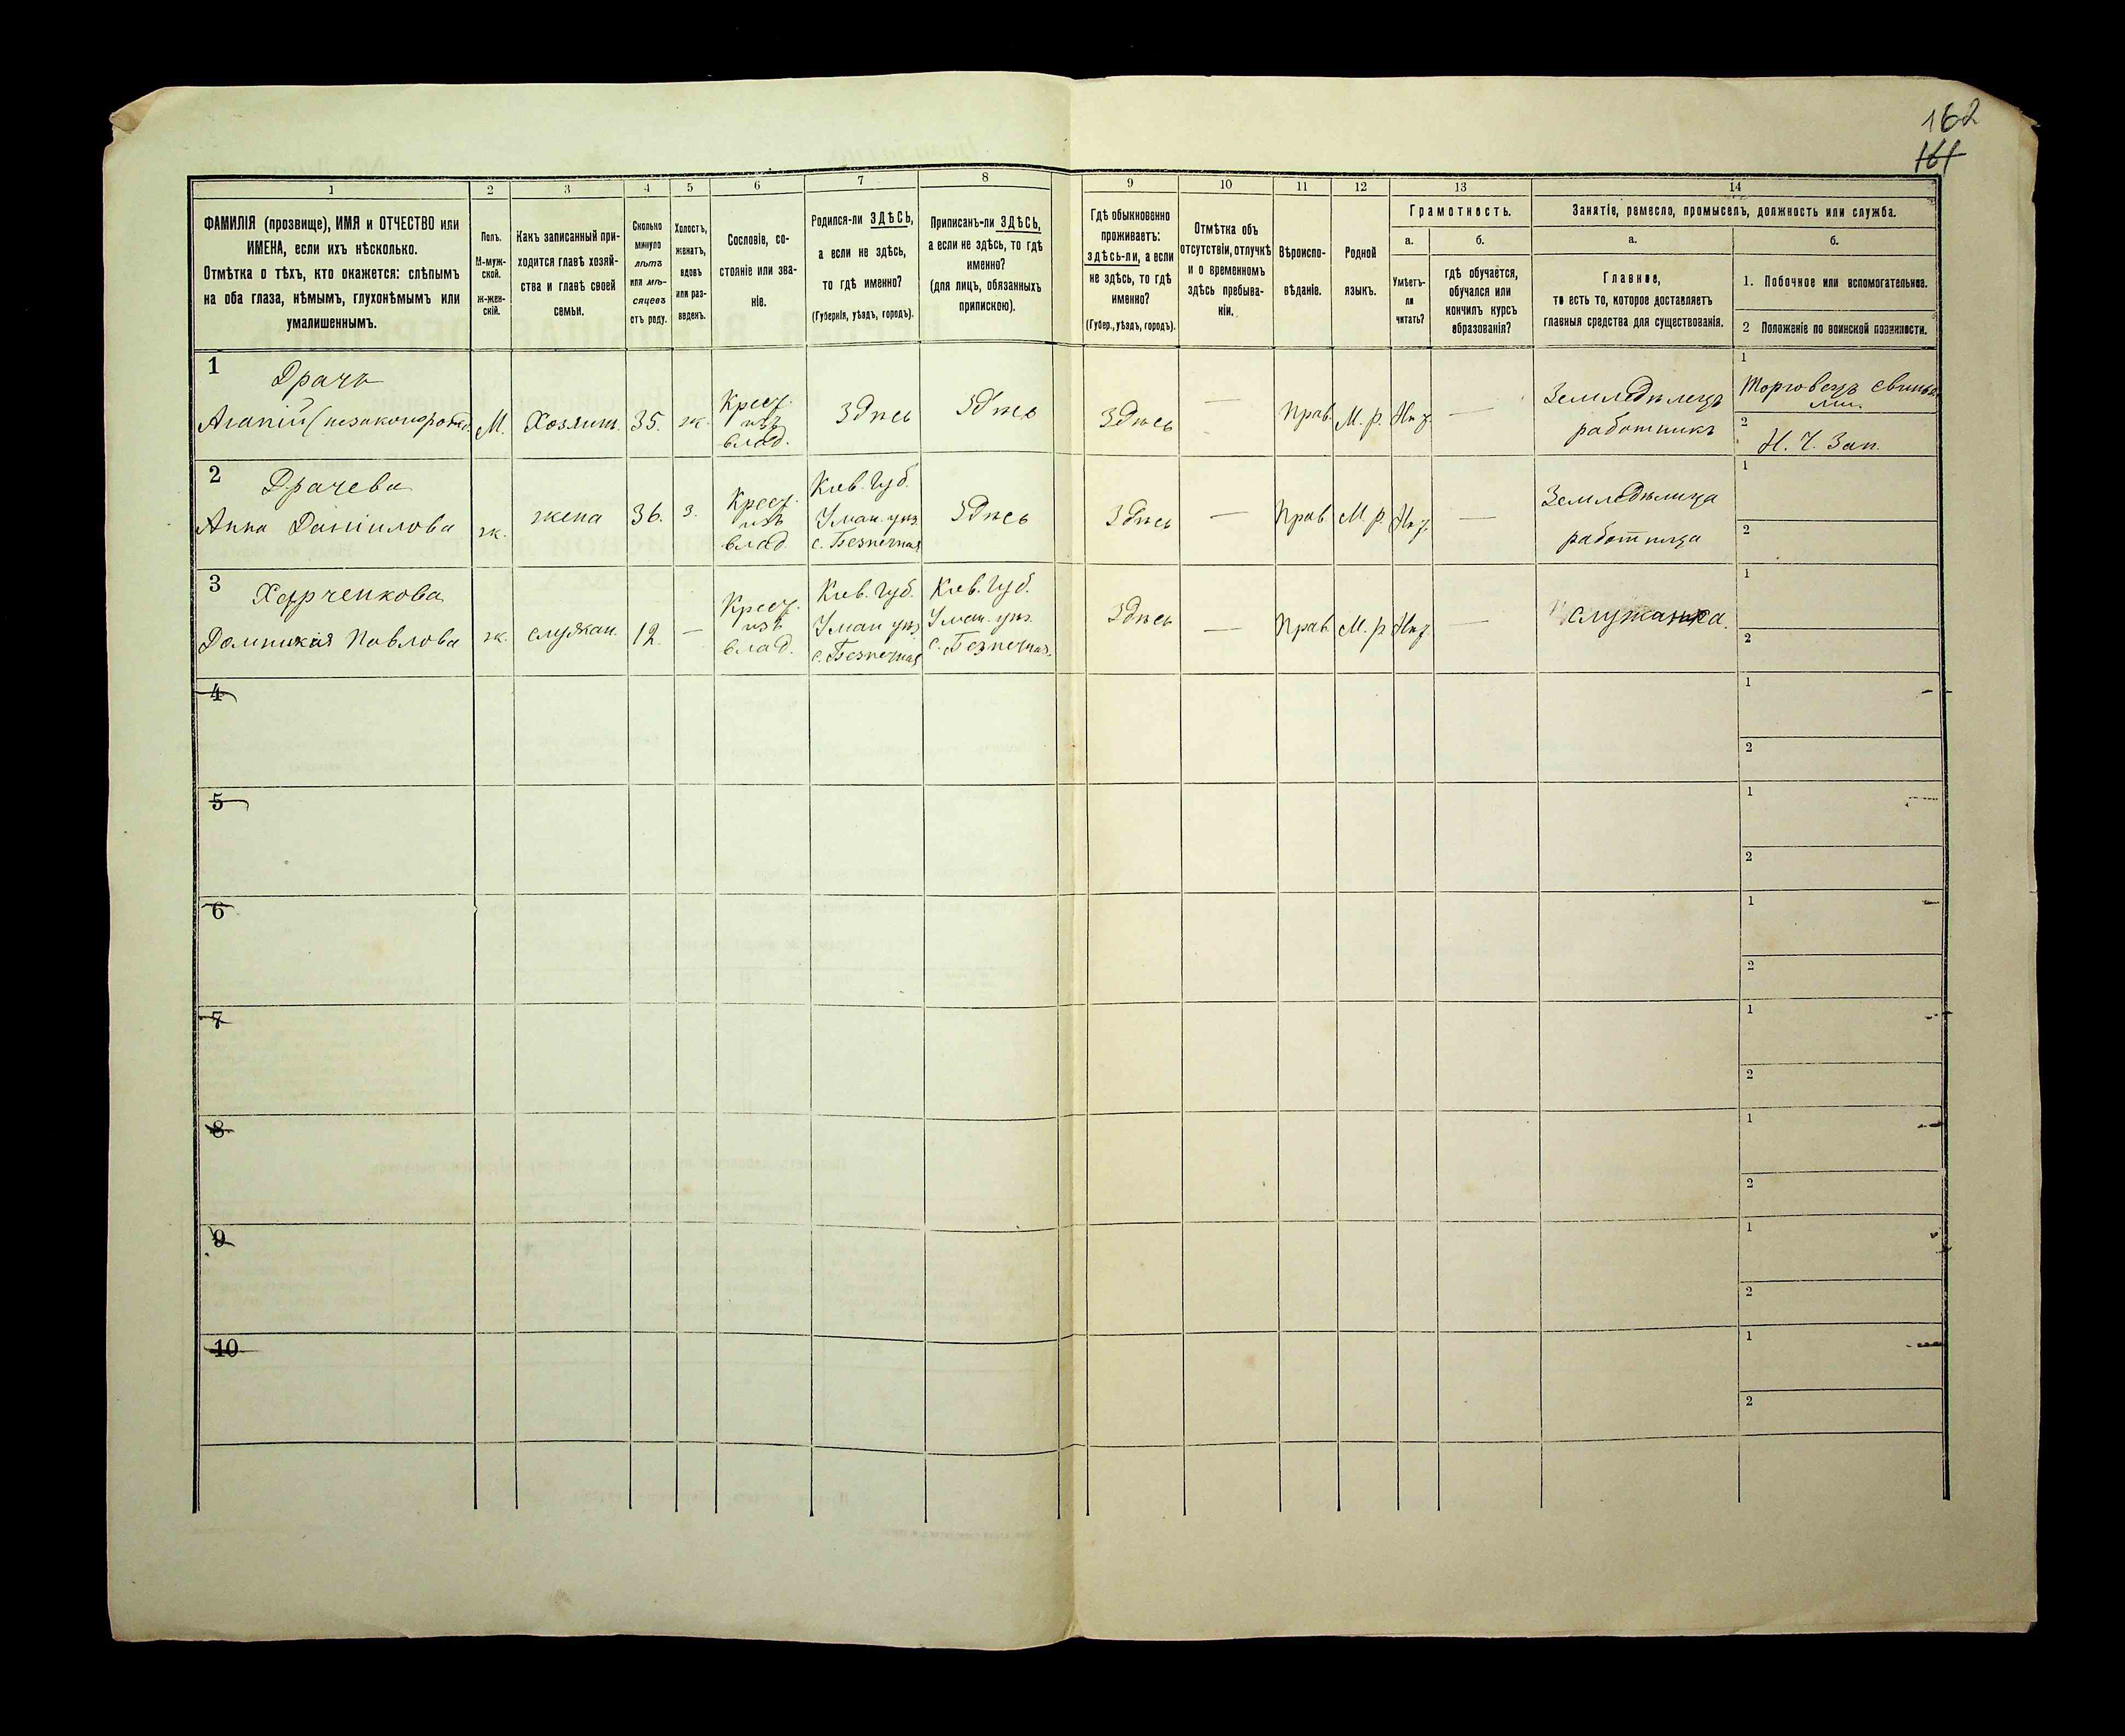 162
161
1
2
3
4
5
6
7
8
9
10
11
12
13
14
ФАМИЛІЯ (прозвище), ИМЯ и ОТЧЕСТВО или
ИМЕНА, если ихъ нѣсколько.
Отмѣтка о тѣхъ, кто окажется: слѣпымъ
на оба глаза, нѣмымъ, глухонѣмымъ или
умалишеннымъ.
Полъ.
М-муж-
ской.
ж-жен-
скій.
Какъ записанный при-
ходится главѣ хозяй-
ства и главѣ своей
семьи.
Сколько
минуло
лѣтъ
или мѣ-
сяцевъ
отъ роду.
Холостъ,
женатъ,
вдовъ
или раз-
веденъ.
Сословіе, со-
стояніе или зва-
ніе.
Родился-ли ЗДѢСЬ,
а если не здѣсь,
то гдѣ именно?
(Губернія, уѣздъ, городъ).
Приписанъ-ли ЗДѢСЬ,
а если не здѣсь, то гдѣ
именно?
(для лицъ, обязанныхъ
припискою).
Гдѣ обыкновенно
проживаетъ:
здѣсь-ли, а если
не здѣсь, то гдѣ
именно?
(Губер., уѣздъ, городъ).
Отмѣтка объ
отсутствіи, отлучкѣ
и о временномъ
здѣсь пребыва-
ніи.
Вѣроиспо-
вѣданіе.
Родной
языкъ.
Грамотность.
а.
Умѣетъ-
ли
читать?
б.
гдѣ обучается,
обучался или
кончилъ курсъ
образованія?
Занятіе, ремесло, промыселъ, должность или служба.
а.
Главное,
то есть то, которое доставляетъ
главныя средства для существованія.
б.
1. Побочное или вспомогательное.
2 Положеніе по воинской повинности.
1
Драчъ
Агапій (незаконорожд.
М.
Хозяин.
35.
ж.
Крест.
изъ
влад.
Здѣсь
Здѣсь
Здѣсь
—
Прав.
М. р.
Нѣт.
—
Земледѣлецъ
работникъ
1
Торговецъ свинья
ми.
2
Н. Ч. Зап.
2
Драчева
Анна Даніилова
ж.
жена
36.
з.
Крест.
изъ
влад.
Кіев. Губ.
Уман. уѣз.
с. Безпечная
Здѣсь
Здѣсь
—
Прав.
М. р.
Нѣт.
—
Земледѣлица
работница
1
2
3
Харченкова
Домникія Павлова
ж.
служан.
12.
—
Крест.
изъ
влад.
Кіев. Губ.
Уман уѣз.
с. Безпечная
Кіев. Губ.
Уман. уѣз.
с. Безпечная.
Здѣсь
—
Прав.
М. р
Нѣт.
—
служанка.
1
2
4
1
2
5
1
2
6
1
2
7
1
2
8
1
2
9
1
2
10
1
2